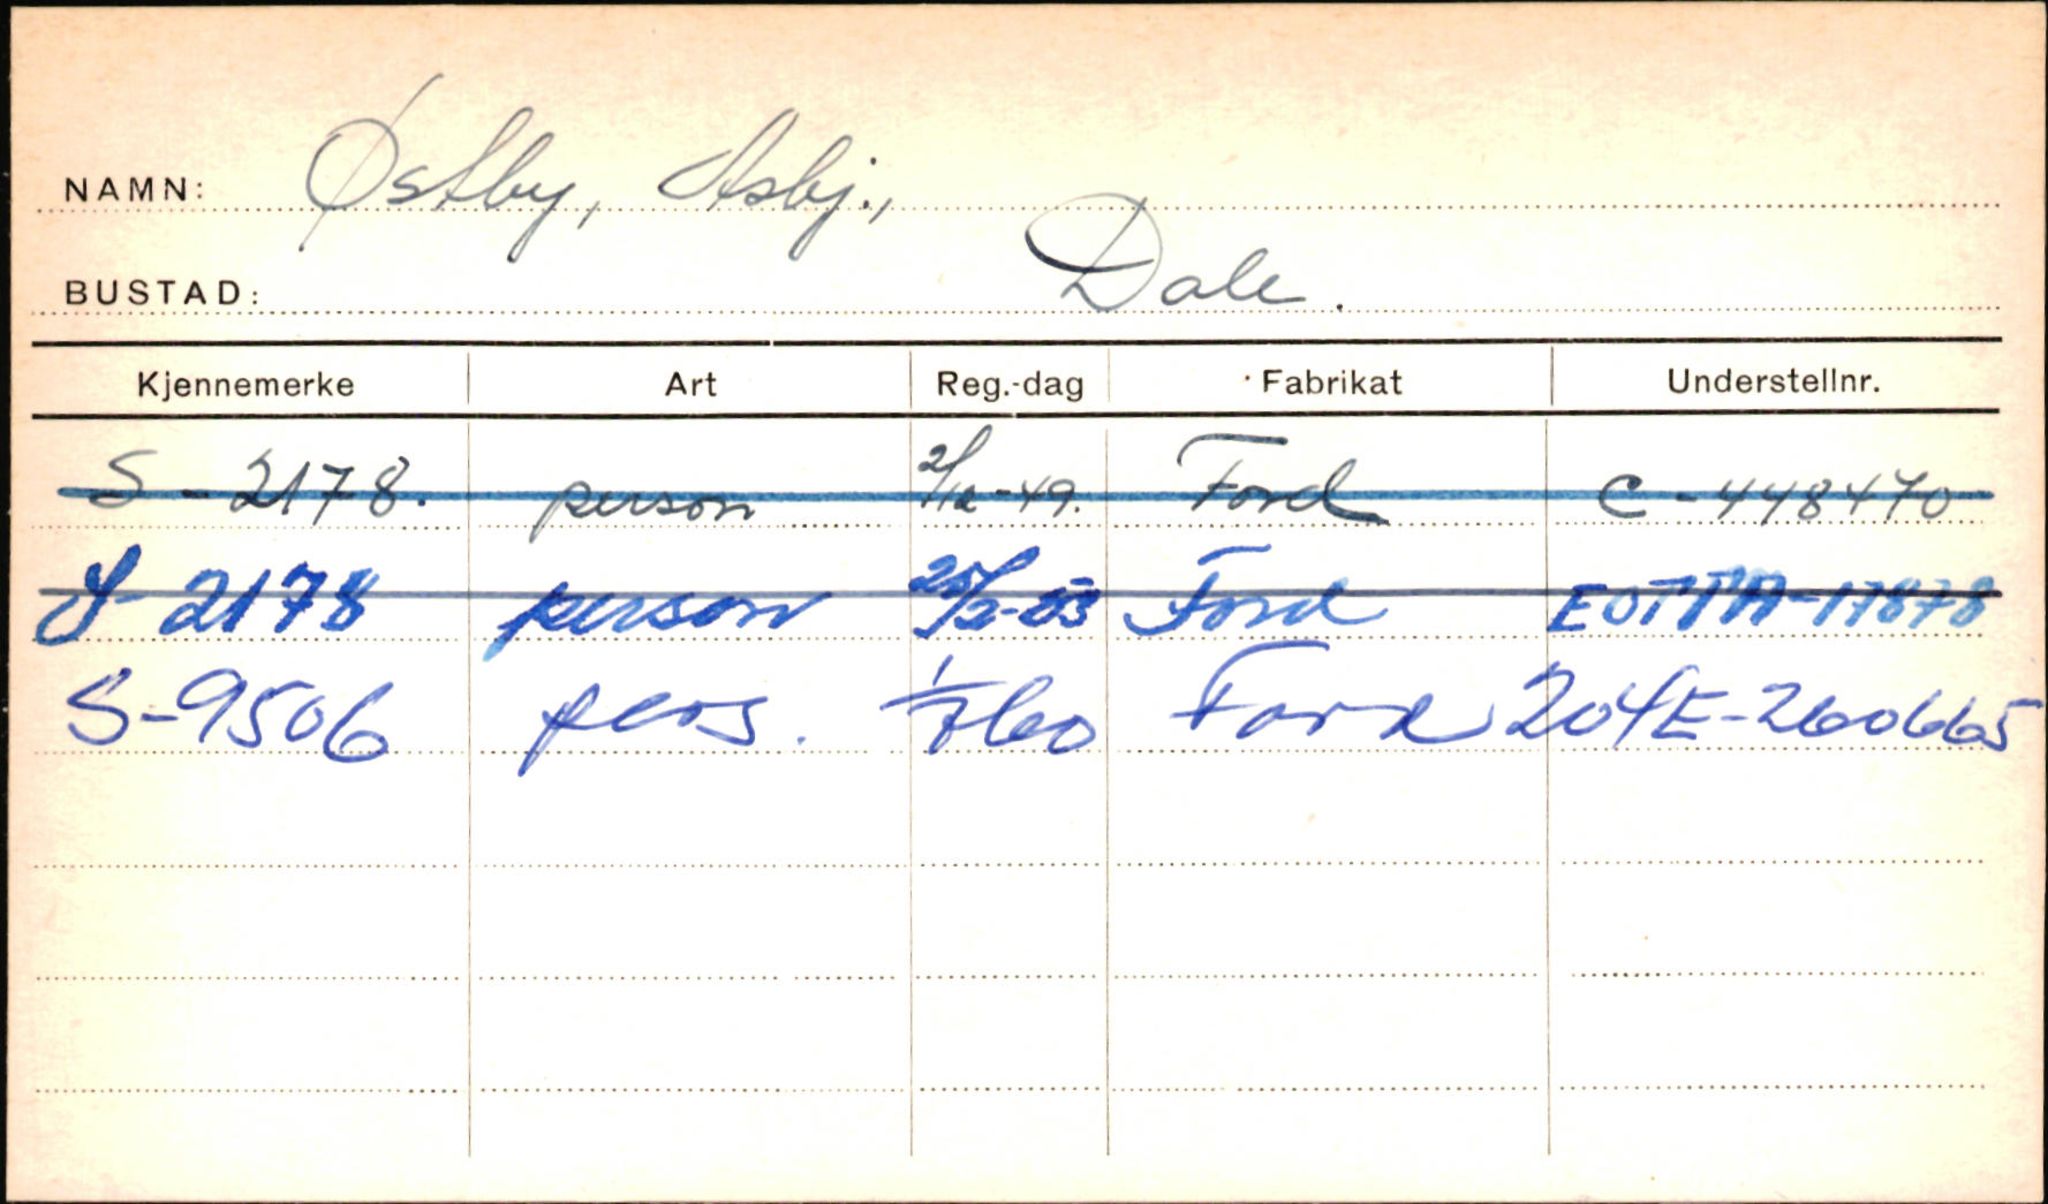 NAMN: Østby, Asbj.,
BUSTAD: Dale.
Kjennemerke Art Reg.-dag Fabrikat Understellnr.
S - 2178. person 2/12-49. Ford C - 448470
S-2178 person 25/2-53 Ford EOTTA-17878
S-9506 pers. 1/760 Ford 204E-260665